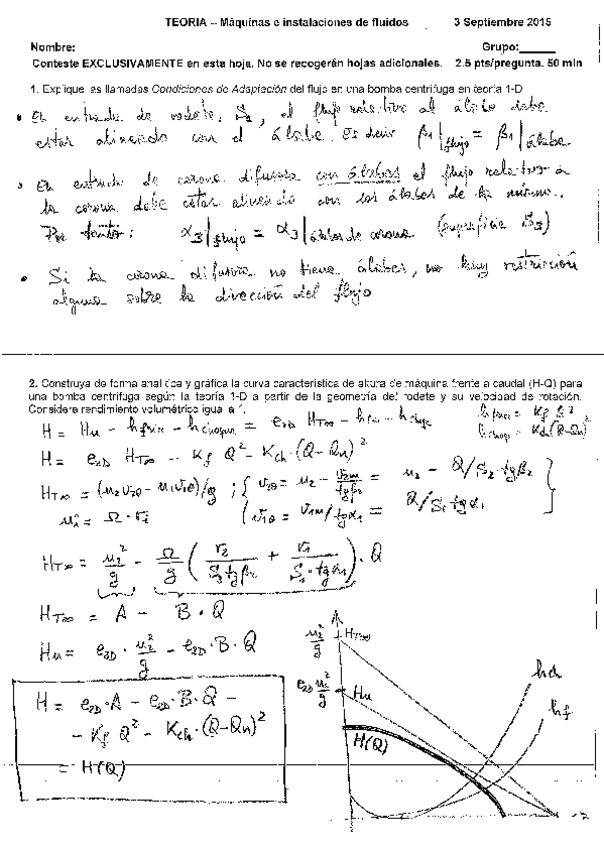 TEORIA – Máquinas e instalaciones de fluidos 3 Septiembre 2015
Nombre: Grupo:______
Conteste EXCLUSIVAMENTE en esta hoja. No se recogerán hojas adicionales. 2.5 pts/pregunta. 50 min
1. Explique las llamadas Condiciones de Adaptación del flujo en una bomba centrífuga en teoría 1-D
• En entrada de rodete, S₁, el flujo relativo al álabe debe
estar alineado con el álabe. Es decir β₁|flujo = β₁|álabe
• En entrada de corona difusora con álabes el flujo relativo a
la corona debe estar alineado con los álabes de la misma.
Por tanto: α₃|flujo = α₃|álabe de corona (superficie S₃)
• Si la corona difusora no tiene álabes, no hay restricción
alguna sobre la dirección del flujo
2. Construya de forma analítica y gráfica la curva característica de altura de máquina frente a caudal (H-Q) para
una bomba centrífuga según la teoría 1-D a partir de la geometría del rodete y su velocidad de rotación.
Considere rendimiento volumétrico igual a 1.
H = Hu - hfricc - hchoque = e2D HT∞ - hfric - hchoque
hfricc = Kf Q²
hchoq = Kch(Q-Qn)²
H = e2D HT∞ - Kf Q² - Kch·(Q-Qn)²
HT∞ = (u₂v₂θ - u₁v₁θ)/g ; { v₂θ = u₂ - v₂m/tgβ₂ = u₂ - Q/S₂·tgβ₂
uᵢ = Ω·rᵢ { v₁θ = v₁m/tgα₁ = Q/S₁tgα₁ }
HT∞ = u₂²/g - Ω/g ( r₂/S₂tgβ₂ + r₁/S₁·tgα₁ )·Q
HT∞ = A - B·Q
Hu = e2D · u₂²/g - e2D·B·Q
H = e2D·A - e2D·B·Q -
- Kf Q² - Kch·(Q-Qn)²
= H(Q)
u₂²/g HT∞
e2D u₂²/g Hu
H(Q)
hch
hf